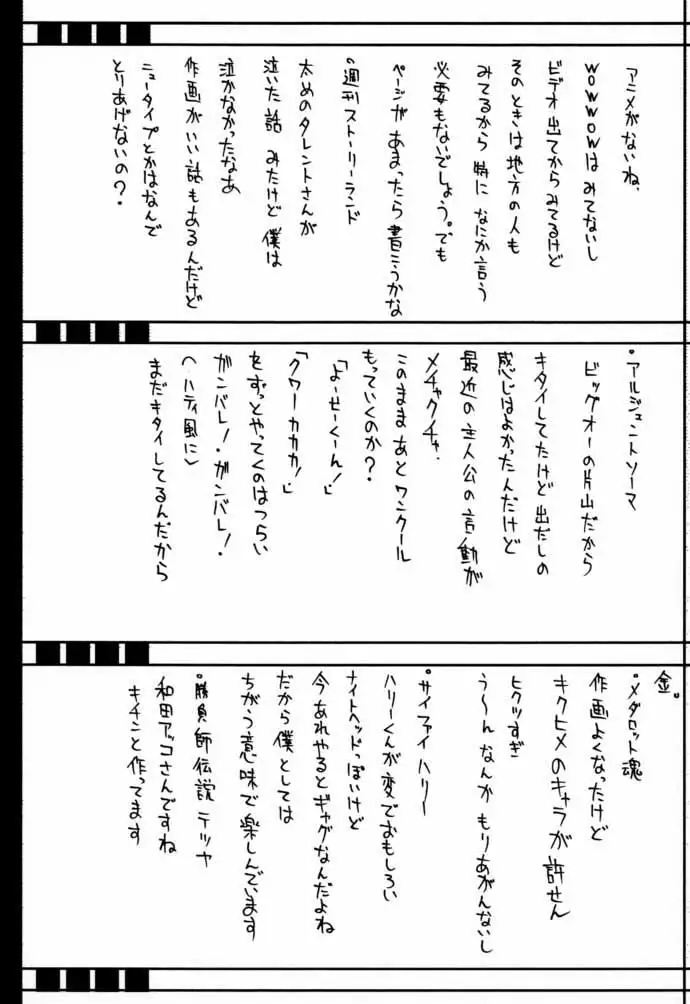 アニメがないね、
WOWWOWは みてないし
ビデオ出てからみてるけど
そのときは地方の人も
みてるから 特に なにか言う
必要もないでしょう。でも
ページが あまったら 書こうかな
・週刊ストーリーランド
太めのタレントさんが
泣いた話 みたけど 僕は
泣かなかったなあ
作画がいい話もあるんだけど
ニュータイプとかはなんで
とりあげないの？
・アルジェントソーマ
ビッグオーの片山だから
キタイしてたけど 出だしの
感じはよかったんだけど
最近の主人公の言動が
メチャクチャ．
このまま あと ワンクール
もっていくのか？
「よーせーくーん！」
「クワーカカカ！」
をずっとやってくのはつらい
ガンバレ！・ガンバレ！
（ハティ風に）
まだキタイしてるんだから
金。
・メダロット魂
作画よくなったけど
キクヒメのキャラが 許せん
ヒクツすぎ
う〜ん なんか もりあがんないし
・サイファイ ハリー
ハリーくんが変でおもしろい
ナイトヘッドっぽいけど
今あれやるとギャグなんだよね
だから僕としては
ちがう意味で楽しんでいます
・勝負師伝説 テツヤ
和田アッコさんですね
キチンと作ってます